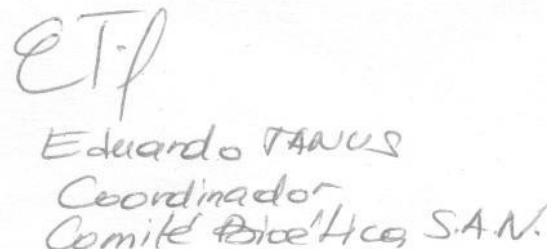 Eduardo TANUS
Coordinador
Comité Bioético S.A.N.